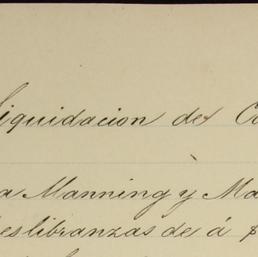 liquidacion del
a Manning y Ma
deslibranzas de á $